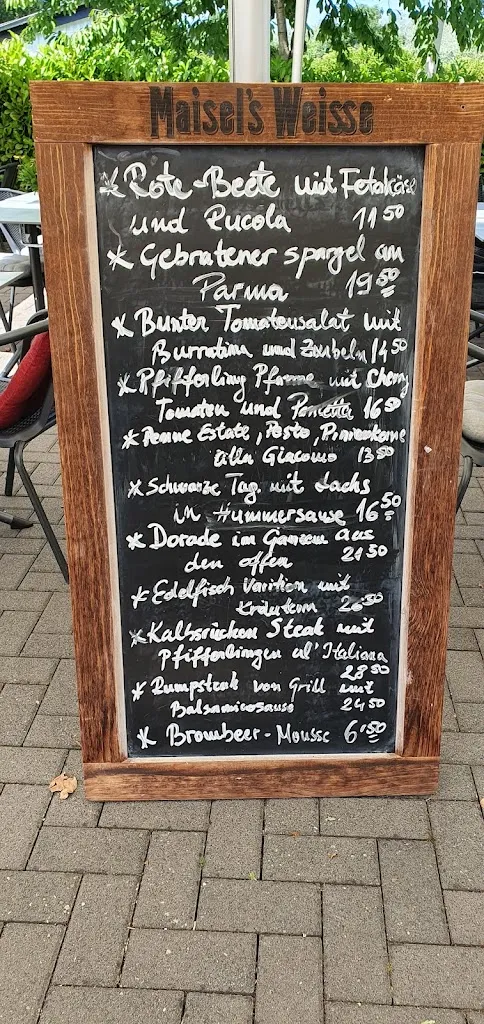 Maisel's Weisse
* Rote-Beete mit Fetakäse
und Rucola 11 50
* Gebratener spargel an
Parma 19 50
* Bunter Tomatensalat mit
Burratina und Zwiebeln 14 50
* Pfifferling Pfanne mit Cherry
Tomaten und Pancetta 16 50
* Penne Estate, Pesto, Pinienkerne
alla Giacomo 13 50
* Schwarze Tag. mit Lachs
in Hummersause 16 50
* Dorade im Ganzem aus
den offen 21 50
* Edelfisch Varition mit
kräutern 26 50
* Kalbsrücken Steak mit
Pfifferlingen al' Italiana
28 50
* Rumpsteak von Grill mit
Balsamicosause 24 50
* Brombeer-Mousse 6'50